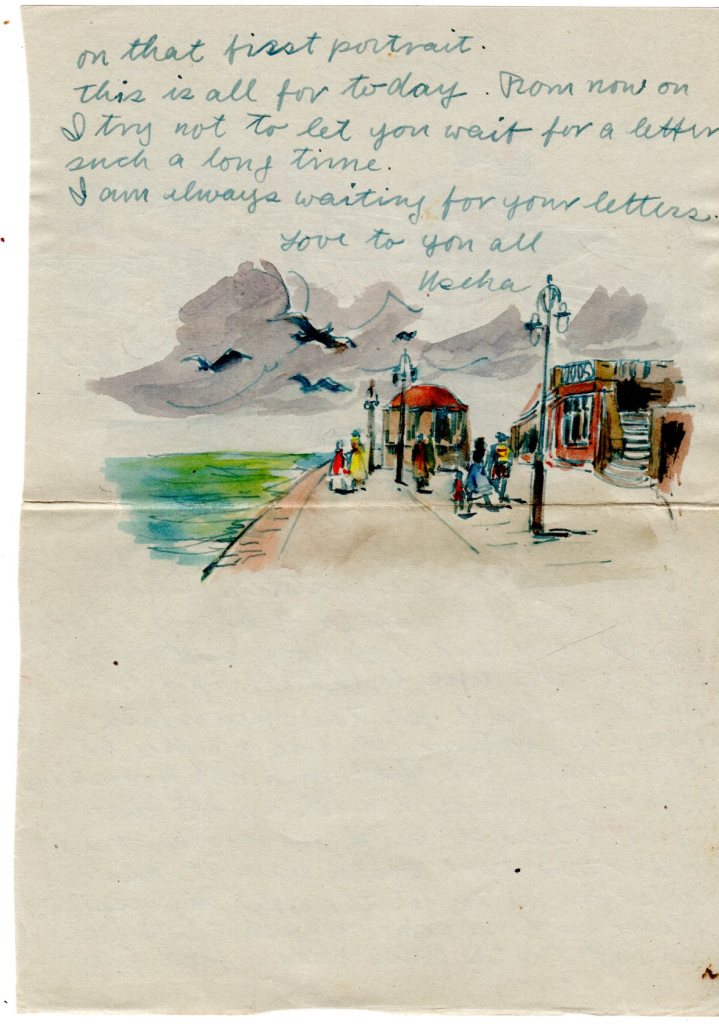 on that first portrait.
this is all for today. From now on
I try not to let you wait for a letter
such a long time.
I am always waiting for your letters.
Love to you all
Uscha